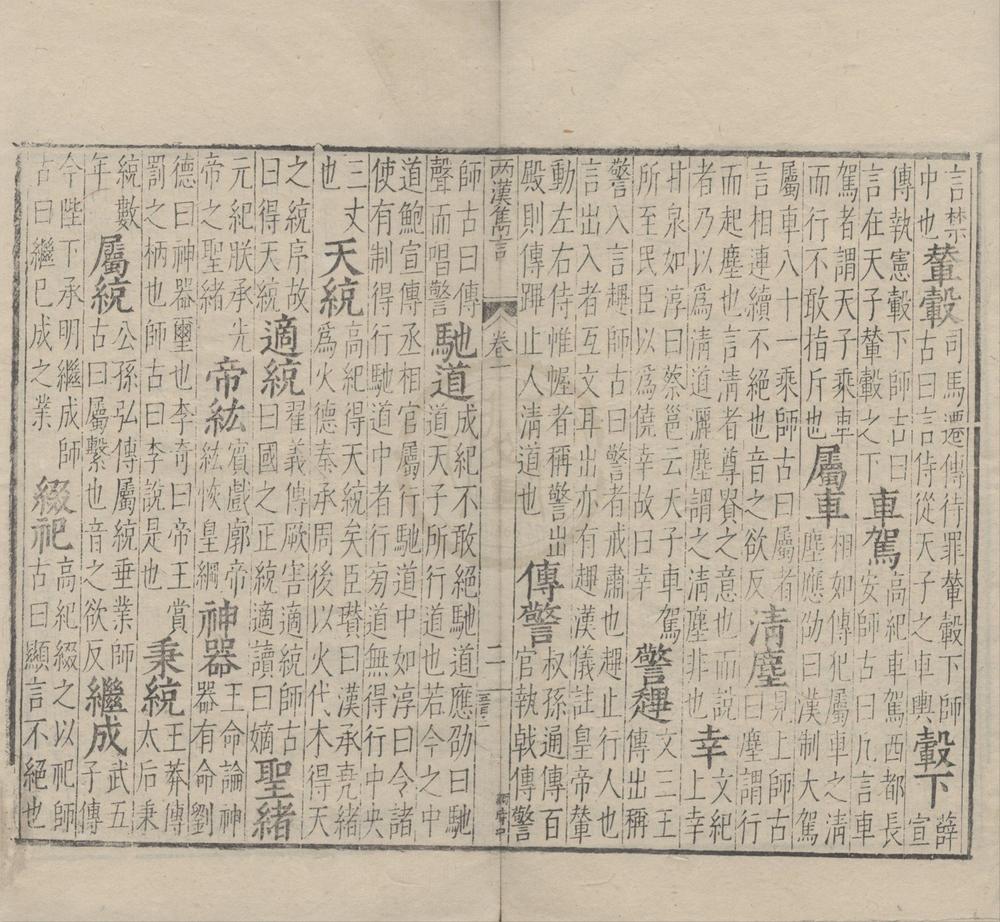 言禁
中也
輦轂
司馬遷傳待罪輦轂下師
古曰言侍從天子之車輿
轂下
薛
宣
傳執憲轂下師古曰
言在天子輦轂之下
車駕
高紀車駕西都長
安師古曰凡言車
駕者謂天子乘車
而行不敢指斥也
屬車
相如傳犯屬車之清
塵應劭曰漢制大駕
屬車八十一乘師古曰屬者
言相連續不絕也音之欲反
清塵
見上師古
曰塵謂行
而起塵也言清者尊貴之意也而說
者乃以爲清道灑塵謂之清塵非也
幸
文紀
上幸
甘泉如淳曰蔡邕云天子車駕
所至民臣以爲僥幸故曰幸
警䟆
文三王
傳出稱
警入言䟆師古曰警者戒肅也䟆止行人也
言出入者互文耳出亦有䟆漢儀註皇帝輦
動左右侍帷幄者稱警出
殿則傳蹕止人清道也
傳警
叔孫通傳百
官執戟傳警
两漢雋言
卷一
二
師古曰傳
聲而唱警
馳道
成紀不敢絕馳道應劭曰馳
道天子所行道也若今之中
道鮑宣傳丞相官屬行馳道中如淳曰令諸
使有制得行馳道中者行旁道無得行中央
三丈
也
天統
高紀得天統矣臣瓚曰漢承堯緒
爲火德秦承周後以火代木得天
之統序故
曰得天統
適統
翟義傳厥害適統師古
曰國之正統適讀曰嫡
聖緒
元紀朕承先
帝之聖緒
帝紘
賓戲廓帝
紘恢皇綱
神器
王命論神
器有命劉
德曰神器璽也李奇曰帝王賞
罰之柄也師古曰李說是也
秉統
王莽傳
太后秉
統數
年
屬統
公孫弘傳屬統垂業師
古曰屬繫也音之欲反
繼成
武五
子傳
今陛下承明繼成師
古曰繼巳成之業
綴祀
高紀綴之以祀師
古曰顯言不絕也